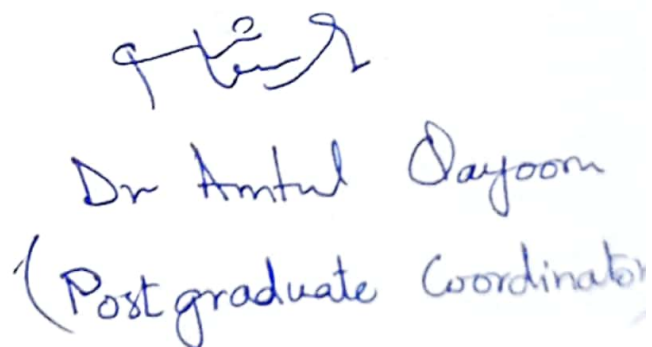 Dr Amtul Qayoom
(Postgraduate Coordinator)